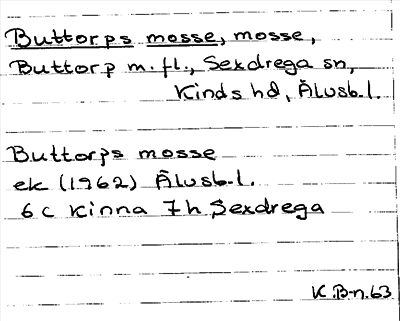 Buttorps mosse, mosse,
Buttorp m.fl., Sexdrega sn,
Kinds hd, Älvsb.l.
Buttorps mosse
ek (1962) Älvsb.l.
6 c Kinna 7h Sexdrega
K.B-n.63